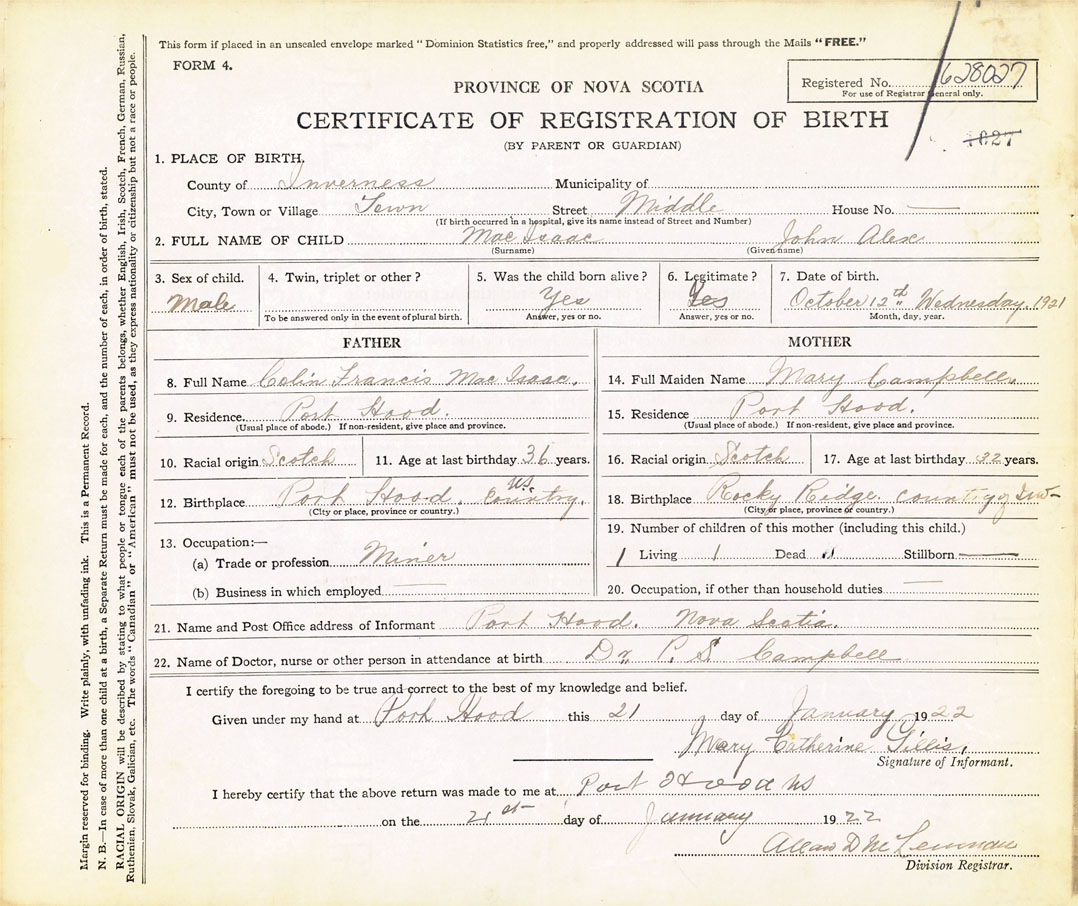 This form if placed in an unsealed envelope marked “Dominion Statistics free,” and properly addressed will pass through the Mails “FREE.”
FORM 4.
Registered No. 628027
For use of Registrar General only.
PROVINCE OF NOVA SCOTIA
CERTIFICATE OF REGISTRATION OF BIRTH
1627
(BY PARENT OR GUARDIAN)
1. PLACE OF BIRTH.
County of Inverness Municipality of
City, Town or Village Town Street Middle House No. —
(If birth occurred in a hospital, give its name instead of Street and Number)
2. FULL NAME OF CHILD Mac Isaac John Alex
(Surname) (Given name)
3. Sex of child. 4. Twin, triplet or other? 5. Was the child born alive? 6. Legitimate? 7. Date of birth.
Male Yes Yes October 12th Wednesday, 1921
To be answered only in the event of plural birth. Answer, yes or no. Answer, yes or no. Month, day, year.
FATHER
8. Full Name Colin Francis Mac Isaac.
9. Residence. Port Hood.
(Usual place of abode.) If non-resident, give place and province.
10. Racial origin Scotch 11. Age at last birthday 36 years.
12. Birthplace Port Hood. Country.
(City or place, province or country.)
13. Occupation:—
(a) Trade or profession Miner
(b) Business in which employed —
MOTHER
14. Full Maiden Name Mary Campbell.
15. Residence Port Hood.
(Usual place of abode.) If non-resident, give place and province.
16. Racial origin Scotch 17. Age at last birthday 32 years.
18. Birthplace Rocky Ridge. county of Inv—
(City or place, province or country.)
19. Number of children of this mother (including this child.)
1 Living 1 Dead Stillborn —
20. Occupation, if other than household duties —
21. Name and Post Office address of Informant Port Hood. Nova Scotia.
22. Name of Doctor, nurse or other person in attendance at birth Dr. P. S. Campbell
I certify the foregoing to be true and correct to the best of my knowledge and belief.
Given under my hand at Port Hood this 21 day of January 1922
Mary Catherine Gillis,
Signature of Informant.
I hereby certify that the above return was made to me at Port Hood NS
on the 21st day of January 1922
Allan D McLennan
Division Registrar.
Margin reserved for binding. Write plainly, with unfading ink. This is a Permanent Record.
N. B.—In case of more than one child at a birth, a Separate Return must be made for each, and the number of each, in order of birth, stated.
RACIAL ORIGIN will be described by stating to what people or tongue each of the parents belongs, whether English, Irish, Scotch, French, German, Russian,
Ruthenian, Slovak, Galician, etc. The words “Canadian” or “American” must not be used, as they express nationality or citizenship but not a race or people.